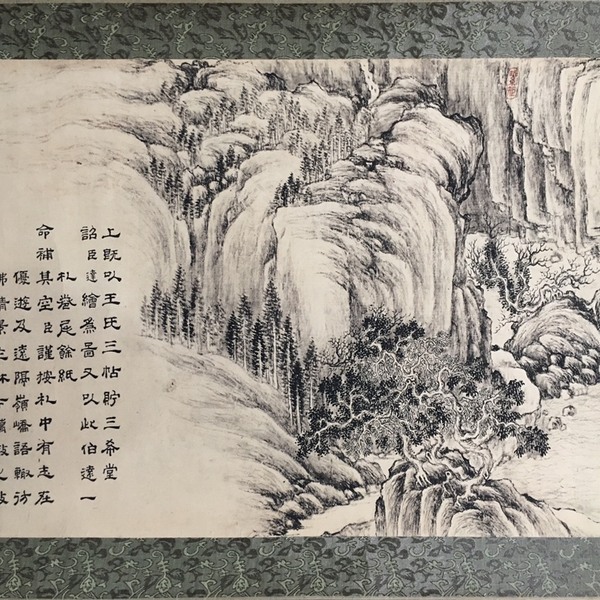 上既以王氏三帖貯三希堂
詔臣達繪為啚又以此伯遠一
札卷尾餘紙
命補其空臣謹按札中有志在
優遊及遠隔嶺嶠語輙彷